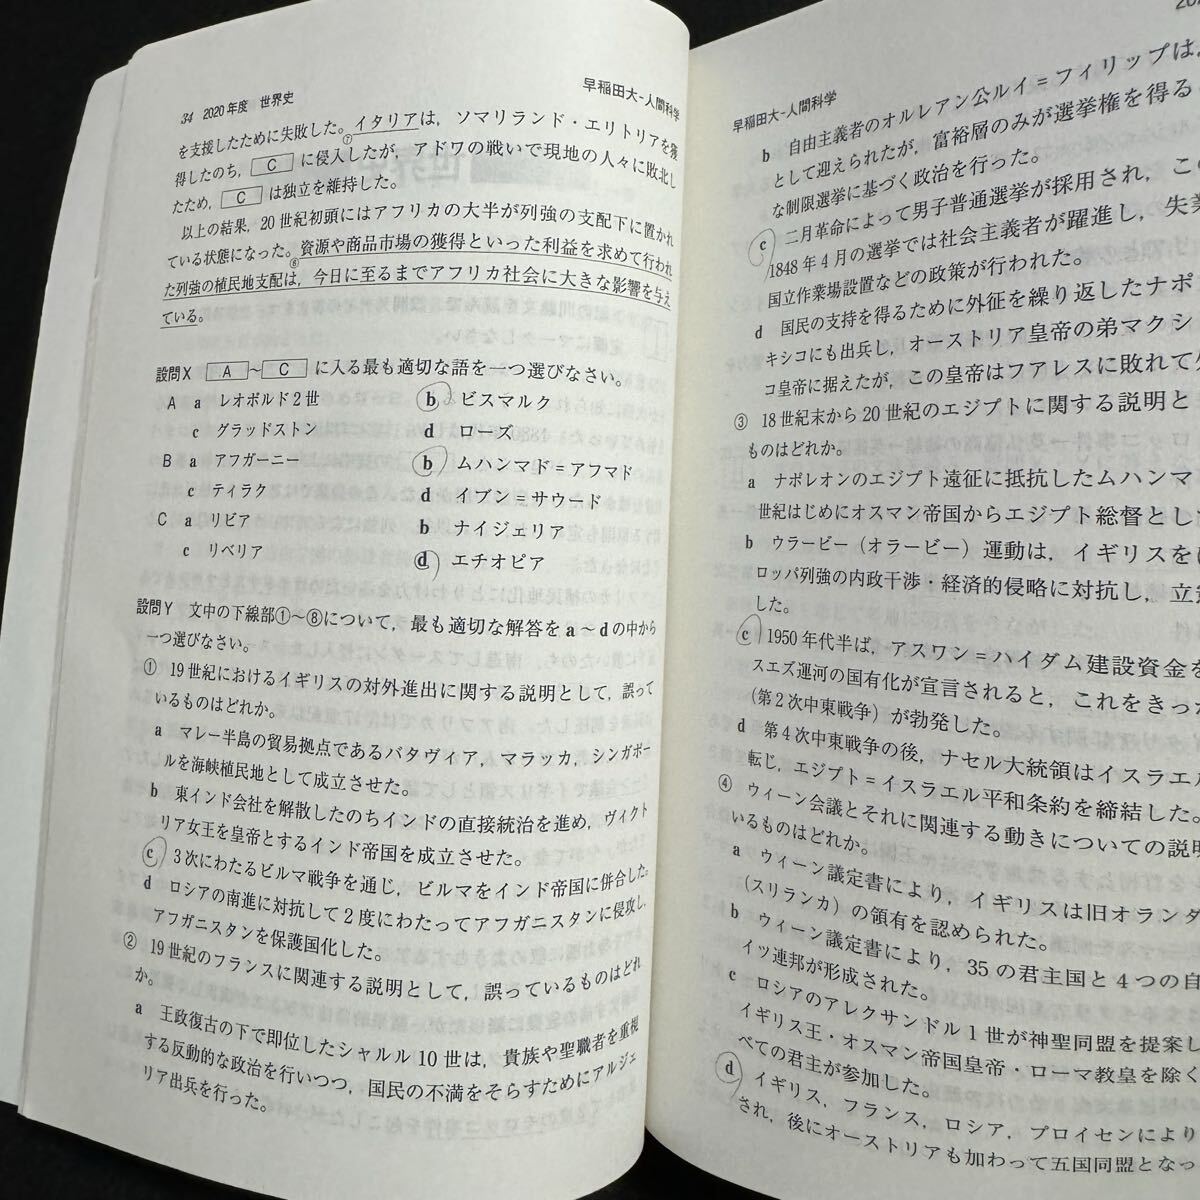 34 2020年度 世界史
早稲田大-人間科学
を支援したために失敗した。イタリアは，ソマリランド・エリトリアを獲
⑦
得したのち，C に侵入したが，アドワの戦いで現地の人々に敗北し
たため，C は独立を維持した。
以上の結果，20世紀初頭にはアフリカの大半が列強の支配下に置かれ
ている状態になった。資源や商品市場の獲得といった利益を求めて行われ
⑧
た列強の植民地支配は，今日に至るまでアフリカ社会に大きな影響を与え
ている。
設問X A～C に入る最も適切な語を一つ選びなさい。
A a レオポルド2世 b ビスマルク
c グラッドストン d ローズ
B a アフガーニー b ムハンマド＝アフマド
c ティラク d イブン＝サウード
C a リビア b ナイジェリア
c リベリア d エチオピア
設問Y 文中の下線部①～⑧について，最も適切な解答をa～dの中から
一つ選びなさい。
① 19世紀におけるイギリスの対外進出に関する説明として，誤って
いるものはどれか。
a マレー半島の貿易拠点であるバタヴィア，マラッカ，シンガポー
ルを海峡植民地として成立させた。
b 東インド会社を解散したのちインドの直接統治を進め，ヴィクト
リア女王を皇帝とするインド帝国を成立させた。
c 3次にわたるビルマ戦争を通じ，ビルマをインド帝国に併合した。
d ロシアの南進に対抗して2度にわたってアフガニスタンに侵攻し，
アフガニスタンを保護国化した。
② 19世紀のフランスに関連する説明として，誤っているものはどれ
か。
a 王政復古の下で即位したシャルル10世は，貴族や聖職者を重視
する反動的な政治を行いつつ，国民の不満をそらすためにアルジェ
リア出兵を行った。
早稲田大-人間科学
b 自由主義者のオルレアン公ルイ＝フィリップは
として迎えられたが，富裕層のみが選挙権を得る
な制限選挙に基づく政治を行った。
c 二月革命によって男子普通選挙が採用され，こ
1848年4月の選挙では社会主義者が躍進し，失業
国立作業場設置などの政策が行われた。
d 国民の支持を得るために外征を繰り返したナポ
キシコにも出兵し，オーストリア皇帝の弟マクシ
コ皇帝に据えたが，この皇帝はフアレスに敗れて
③ 18世紀末から20世紀のエジプトに関する説明と
ものはどれか。
a ナポレオンのエジプト遠征に抵抗したムハンマ
世紀はじめにオスマン帝国からエジプト総督とし
b ウラービー（オラービー）運動は，イギリスを
ロッパ列強の内政干渉・経済的侵略に対抗し，立
した。
c 1950年代半ば，アスワン＝ハイダム建設資金を
スエズ運河の国有化が宣言されると，これをきっ
（第2次中東戦争）が勃発した。
d 第4次中東戦争の後，ナセル大統領はイスラエル
転じ，エジプト＝イスラエル平和条約を締結した。
④ ウィーン会議とそれに関連する動きについての説明
いるものはどれか。
a ウィーン議定書により，イギリスは旧オランダ
（スリランカ）の領有を認められた。
b ウィーン議定書により，35の君主国と4つの自
イツ連邦が形成された。
c ロシアのアレクサンドル1世が神聖同盟を提案し
イギリス王・オスマン帝国皇帝・ローマ教皇を除く
べての君主が参加した。
d イギリス，フランス，ロシア，プロイセンにより
され，後にオーストリアも加わって五国同盟となっ